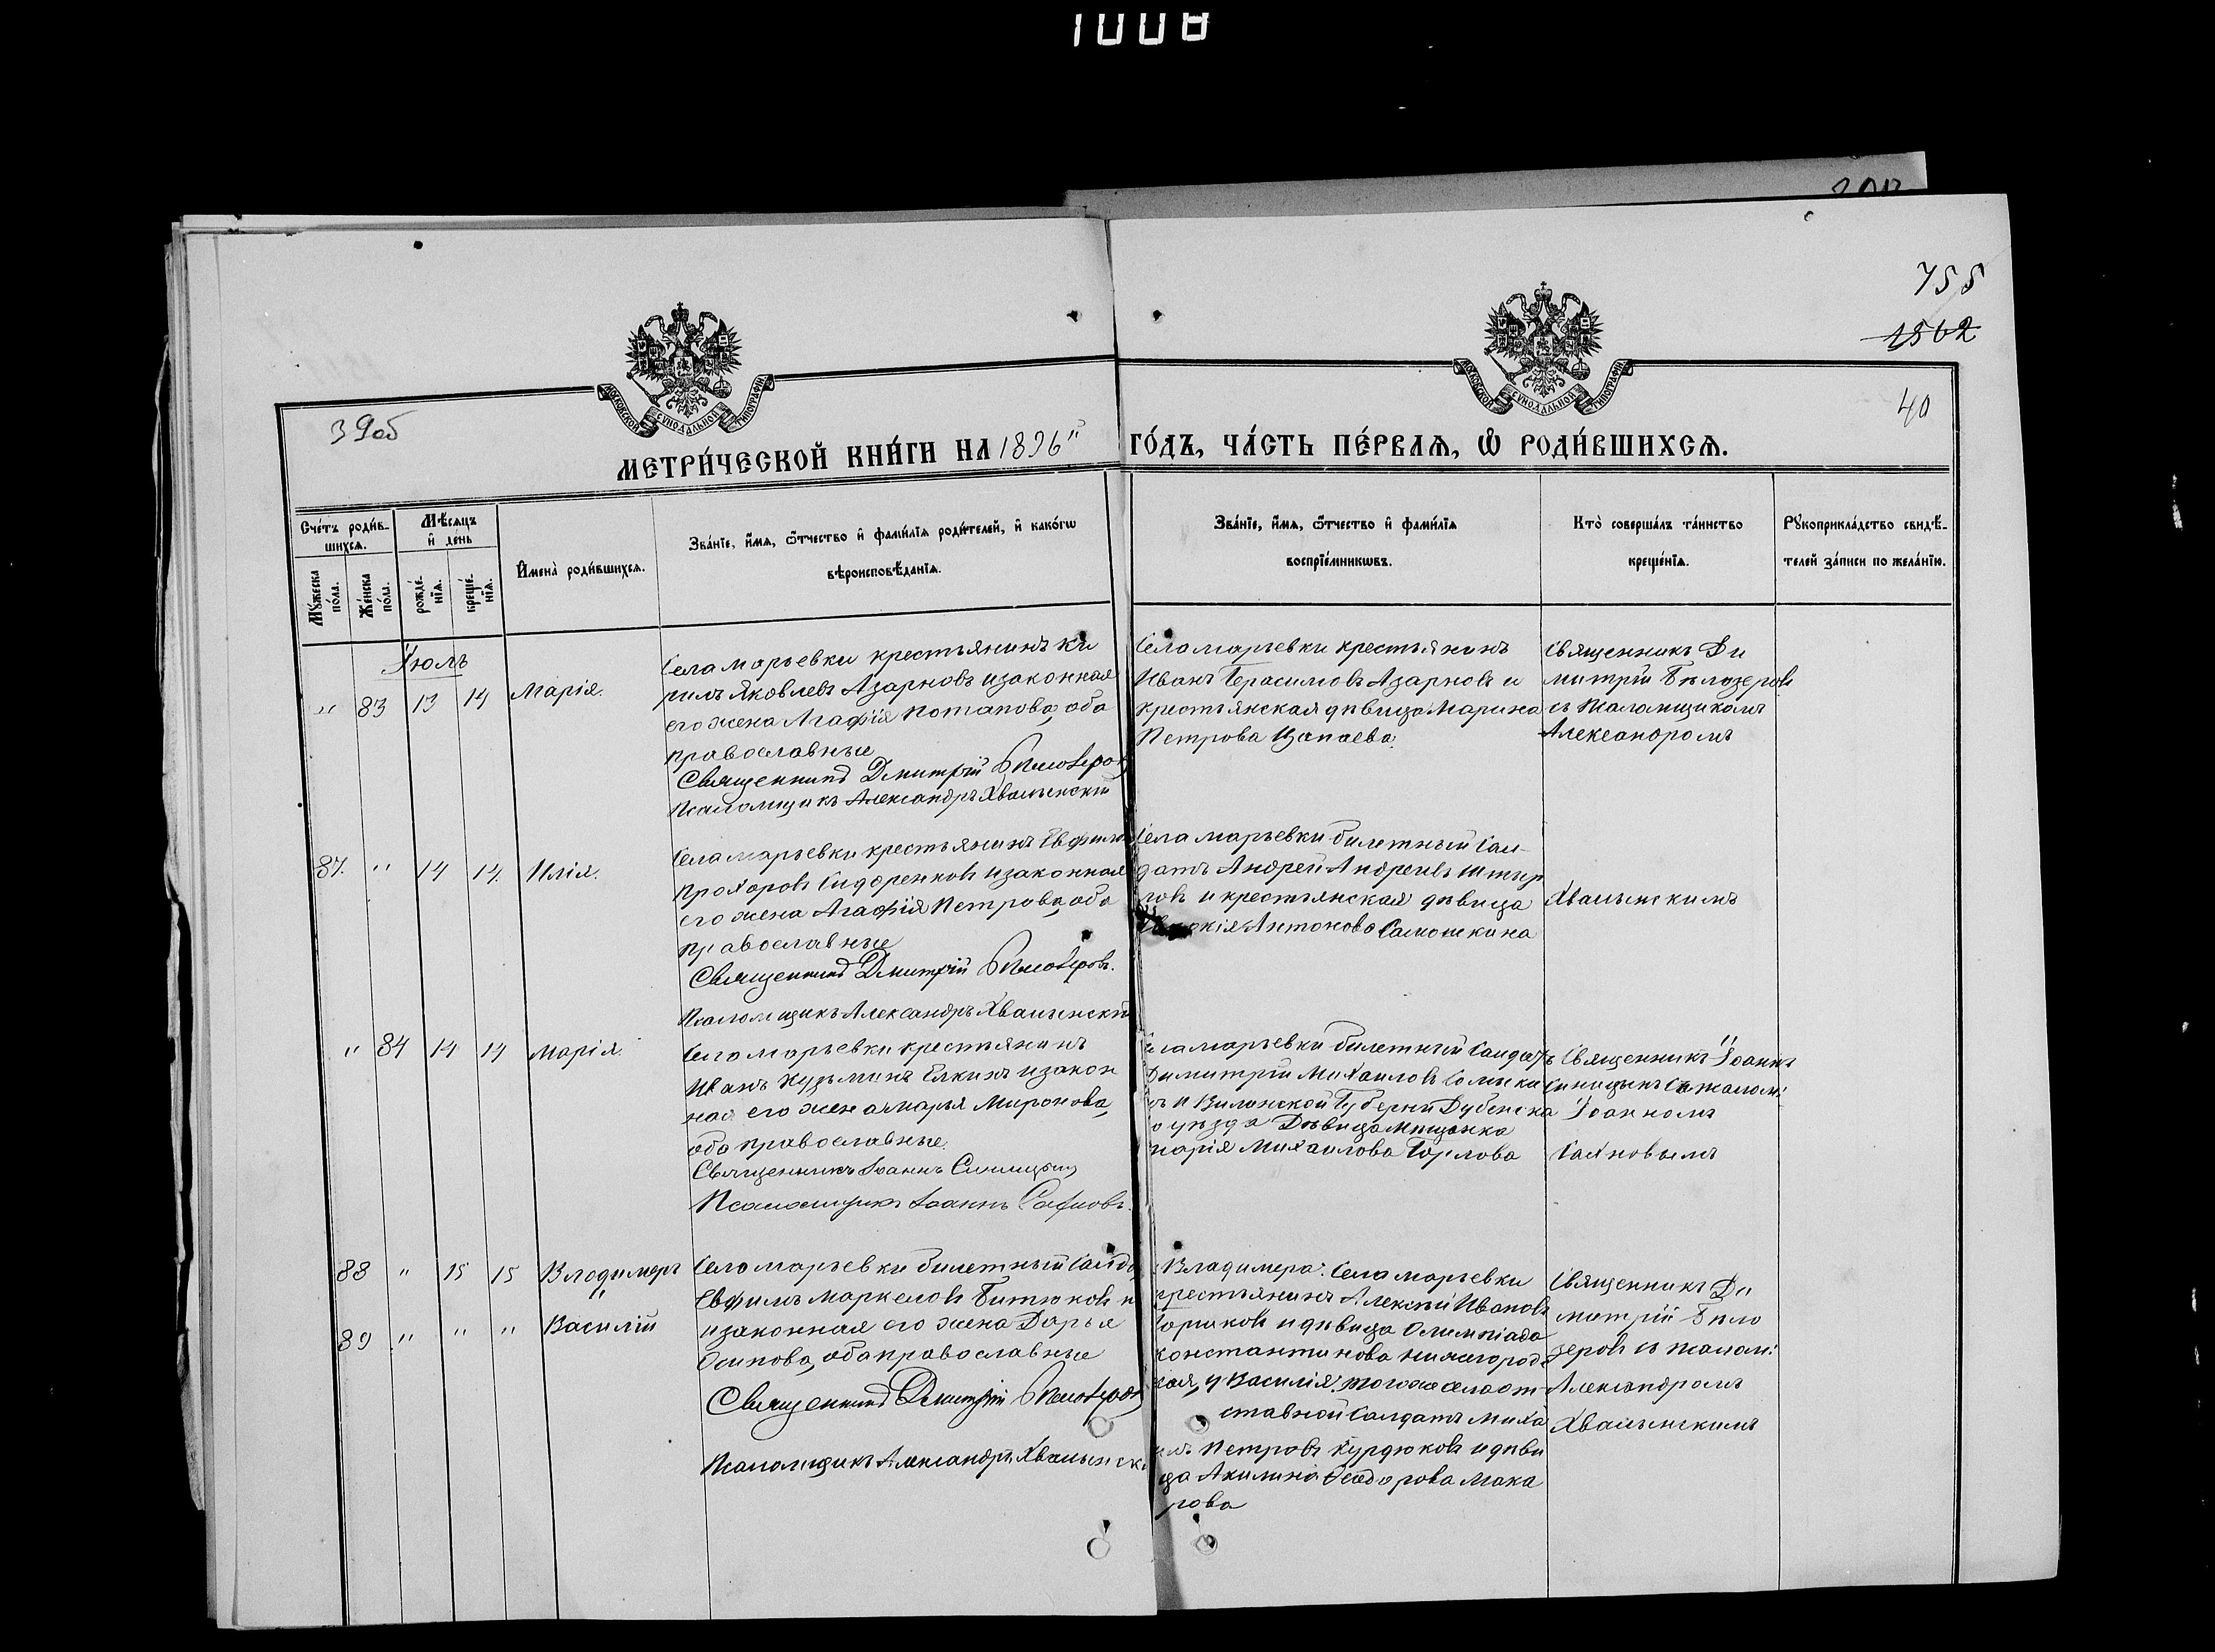 1008
755
1562
39об
40
МОСКОВСКОЙ СѴНОДАЛЬНОЙ ТИПОГРАФІИ
МОСКОВСКОЙ СѴНОДАЛЬНОЙ ТИПОГРАФІИ
МЕТРИ́ЧЕСКОЙ КНИ́ГИ НА 1896" ГО́ДЪ, ЧА́СТЬ ПЕ́РВАѦ, Ѡ РОДИ́ВШИХСѦ.
Сче́тъ роди́в-
шихсѧ.
Мѣ́сѧцъ
и҆ де́нь
Мꙋ́жеска
по́ла.
Же́нска
по́ла.
рожде́-
нїѧ.
креще́-
нїѧ.
И҆мена̀ роди́вшихсѧ.
Зва́нїе, и҆́мѧ, ѻ҆́тчество и҆ фами́лїѧ роди́телей, и҆ како́гѡ
вѣроисповѣ́данїѧ.
Зва́нїе, и҆́мѧ, ѻ҆́тчество и҆ фами́лїѧ
воспрїе́мникѡвъ.
Кто̀ соверша́лъ та́инство
креще́нїѧ.
Рꙋкоприкла́дство свидѣ́-
телей за́писи по жела́нїю.
Іюль
" 83 13 14 Марія.
Села Марьевки крестьянинъ Ки
рилъ Яковлевъ Азарновъ и законная
его жена Агафія Потапова, оба
православные
Священникъ Дмитрій Бѣлозеровъ
Псаломщикъ Александръ Хвалынскій
Села Марьевки крестьянинъ
Иванъ Герасимовъ Азарновъ и
крестьянская дѣвица Марина
Петрова Цапаева.
Священникъ Ди
митрій Бѣлозеровъ
съ псаломщикомъ
Александромъ
87. " 14 14. Илія.
Села Марьевки крестьянинъ Евфимъ
Прохоровъ Сидоренковъ и законная
его жена Агафія Петрова, оба
православные
Священникъ Дмитрій Бѣлозеровъ.
Псаломщикъ Александръ Хвалынскій
Села Марьевки билетный Сал-
датъ Андрей Андреевъ
и крестьянская дѣвица
Антонова Самошкина
Хвалынскимъ
" 84 14 14 Марія.
Села Марьевки крестьянинъ
Иванъ Кузьминъ Елкинъ и закон
ная его жена Марья Миронова,
оба православные.
Священникъ Іоаннъ Синицынъ
Псаломщикъ Іоаннъ
Села Марьевки билетный Салдатъ
Димитрій Михаиловъ
и Виленской Губерни
уѣзда Дѣвица Мѣщанка
Марія Михаилова
Священникъ Іоаннъ
Синицынъ съ псалом:
Іоанномъ
88 " 15 15 Владимеръ
89 " " " Василій
Села Марьевки билетный Салда
Евфимъ Маркеловъ Битюковъ и
и законная его жена Дарья
Осипова, оба православные
Священникъ Дмитрій Бѣлозеровъ
Псаломщикъ Александръ Хвалынскі
Владимера: Села Марьевки
крестьянинъ Алексѣй Ивановъ
и дѣвица Олимпіада
Константинова Нижегород
ская, и Василія: того же села от-
ставной Салдатъ Миха
илъ Петровъ Курдюковъ и дѣви
ца Акилина Ѳеодорова Мака
рова
Священникъ Ди
митрій Бѣло
зеровъ съ псалом:
Александромъ
Хвалынскимъ